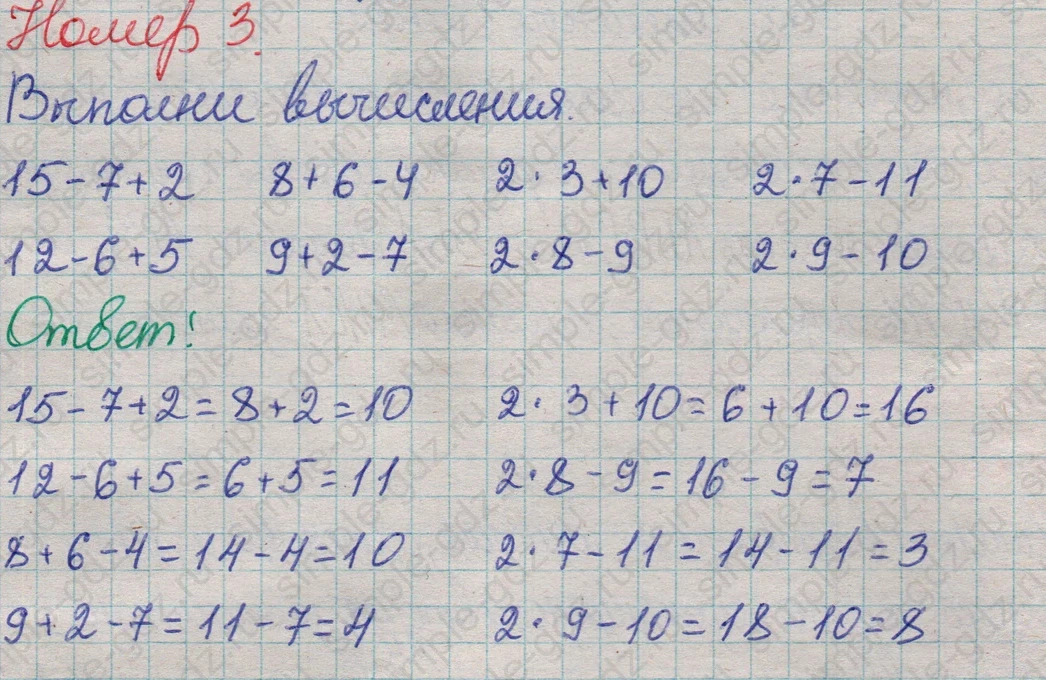 Номер 3.
Выполни вычисления.
15-7+2 8+6-4 2·3+10 2·7-11
12-6+5 9+2-7 2·8-9 2·9-10
Ответ:
15-7+2=8+2=10 2·3+10=6+10=16
12-6+5=6+5=11 2·8-9=16-9=7
8+6-4=14-4=10 2·7-11=14-11=3
9+2-7=11-7=4 2·9-10=18-10=8